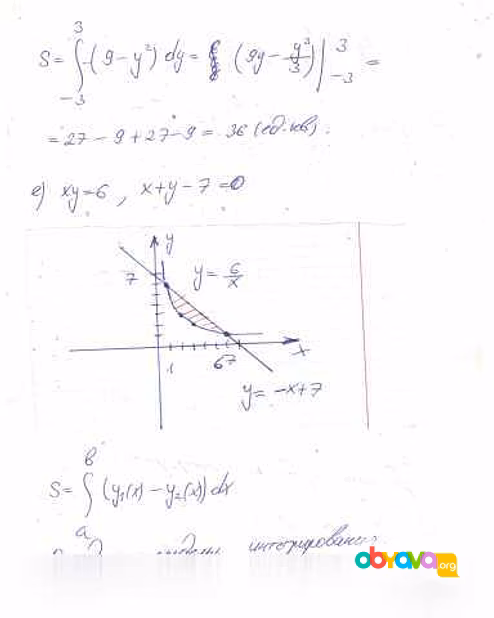 S = ∫₋₃³ (9 - y²) dy = (9y - y³/3) |₋₃³ =
= 27 - 9 + 27 - 9 = 36 (ед. кв).
e) xy = 6, x + y - 7 = 0
y
7
y = 6/x
1
6 7
x
y = -x+7
S = ∫ₐᵇ (y₁(x) - y₂(x)) dx
интегрирования
obyava.org